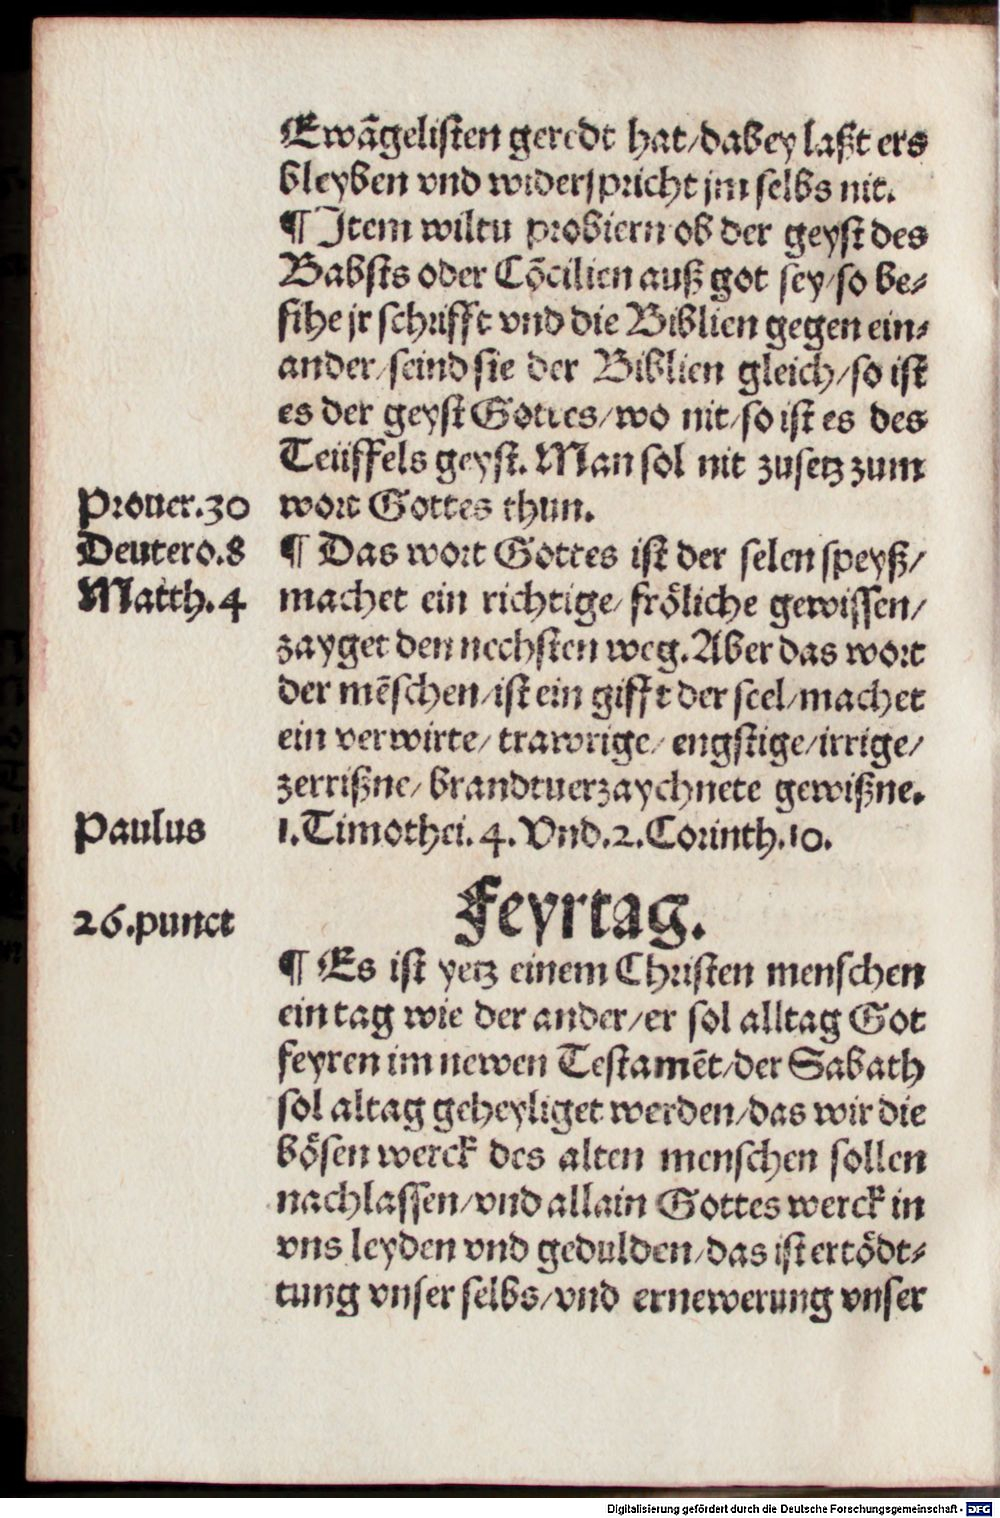 Ewãgelisten geredt hat/dabey laßt ers
bleyben vnd widerspricht jm selbs nit.
¶ Jtem wiltu probiern ob der geyst des
Babsts oder Cõcilien auß got sey/so be-
sihe jr schrifft vnd die Biblien gegen ein-
ander/seind sie der Biblien gleich/so ist
es der geyst Gottes/wo nit/so ist es des
Teüffels geyst. Man sol nit zusetz zum
Prouer.30 wort Gottes thun.
Deutero.8 ¶ Das wort Gottes ist der selen speyß/
Matth.4 machet ein richtige/ fröliche gewissen/
zayget den nechsten weg. Aber das wort
der mẽschen/ist ein gifft der seel/machet
ein verwirte/ trawrige/ engstige/irrige/
zerrißne/ brandtuerzaychnete gewißne.
Paulus 1.Timothei. 4. Vnd.2.Corinth.10.
26.punct Feyrtag.
¶ Es ist yetz einem Christen menschen
ein tag wie der ander/er sol alltag Got
feyren im newen Testamẽt/der Sabath
sol altag geheyliget werden/das wir die
bösen werck des alten menschen sollen
nachlassen/vnd allain Gottes werck in
vns leyden vnd gedulden/das ist ertödt-
tung vnser selbs/vnd ernewerung vnser
Digitalisierung gefördert durch die Deutsche Forschungsgemeinschaft - DFG